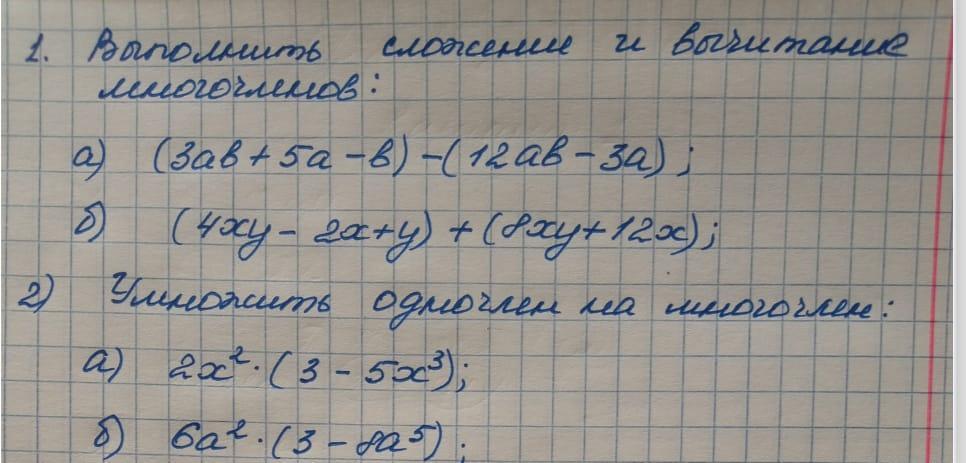 1. Выполнить сложение и вычитание
многочленов:
а) (3ab + 5a - b) - (12ab - 3a);
б) (4xy - 2x + y) + (8xy + 12x);
2) Умножить одночлен на многочлен:
а) 2x² · (3 - 5x³);
б) 6a² · (3 - 8a⁵);